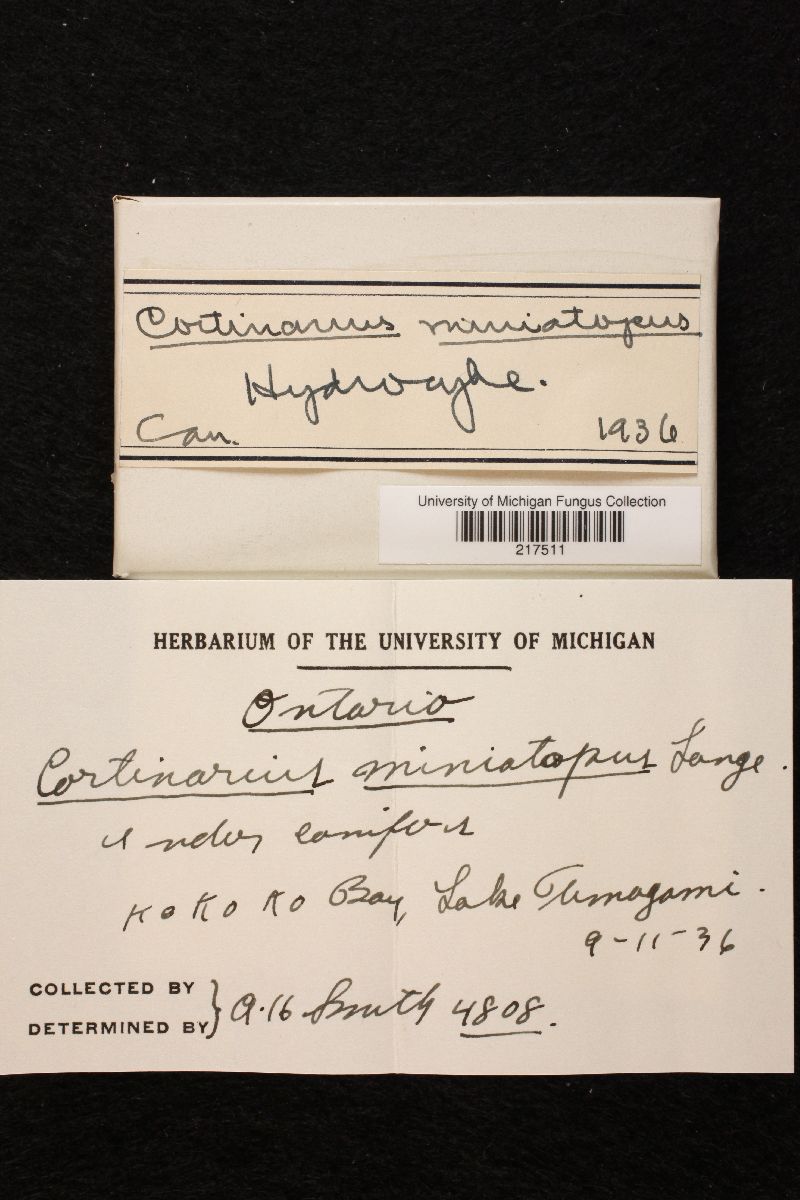 Cortinarius miniatopus
Hydrocybe.
Can. 1936
University of Michigan Fungus Collection
217511
HERBARIUM OF THE UNIVERSITY OF MICHIGAN
Ontario
Cortinarius miniatopus Lange.
Under conifers
Ko Ko Ko Bay, Lake Timagami.
9-11-36
COLLECTED BY
DETERMINED BY } A.H. Smith 4808.